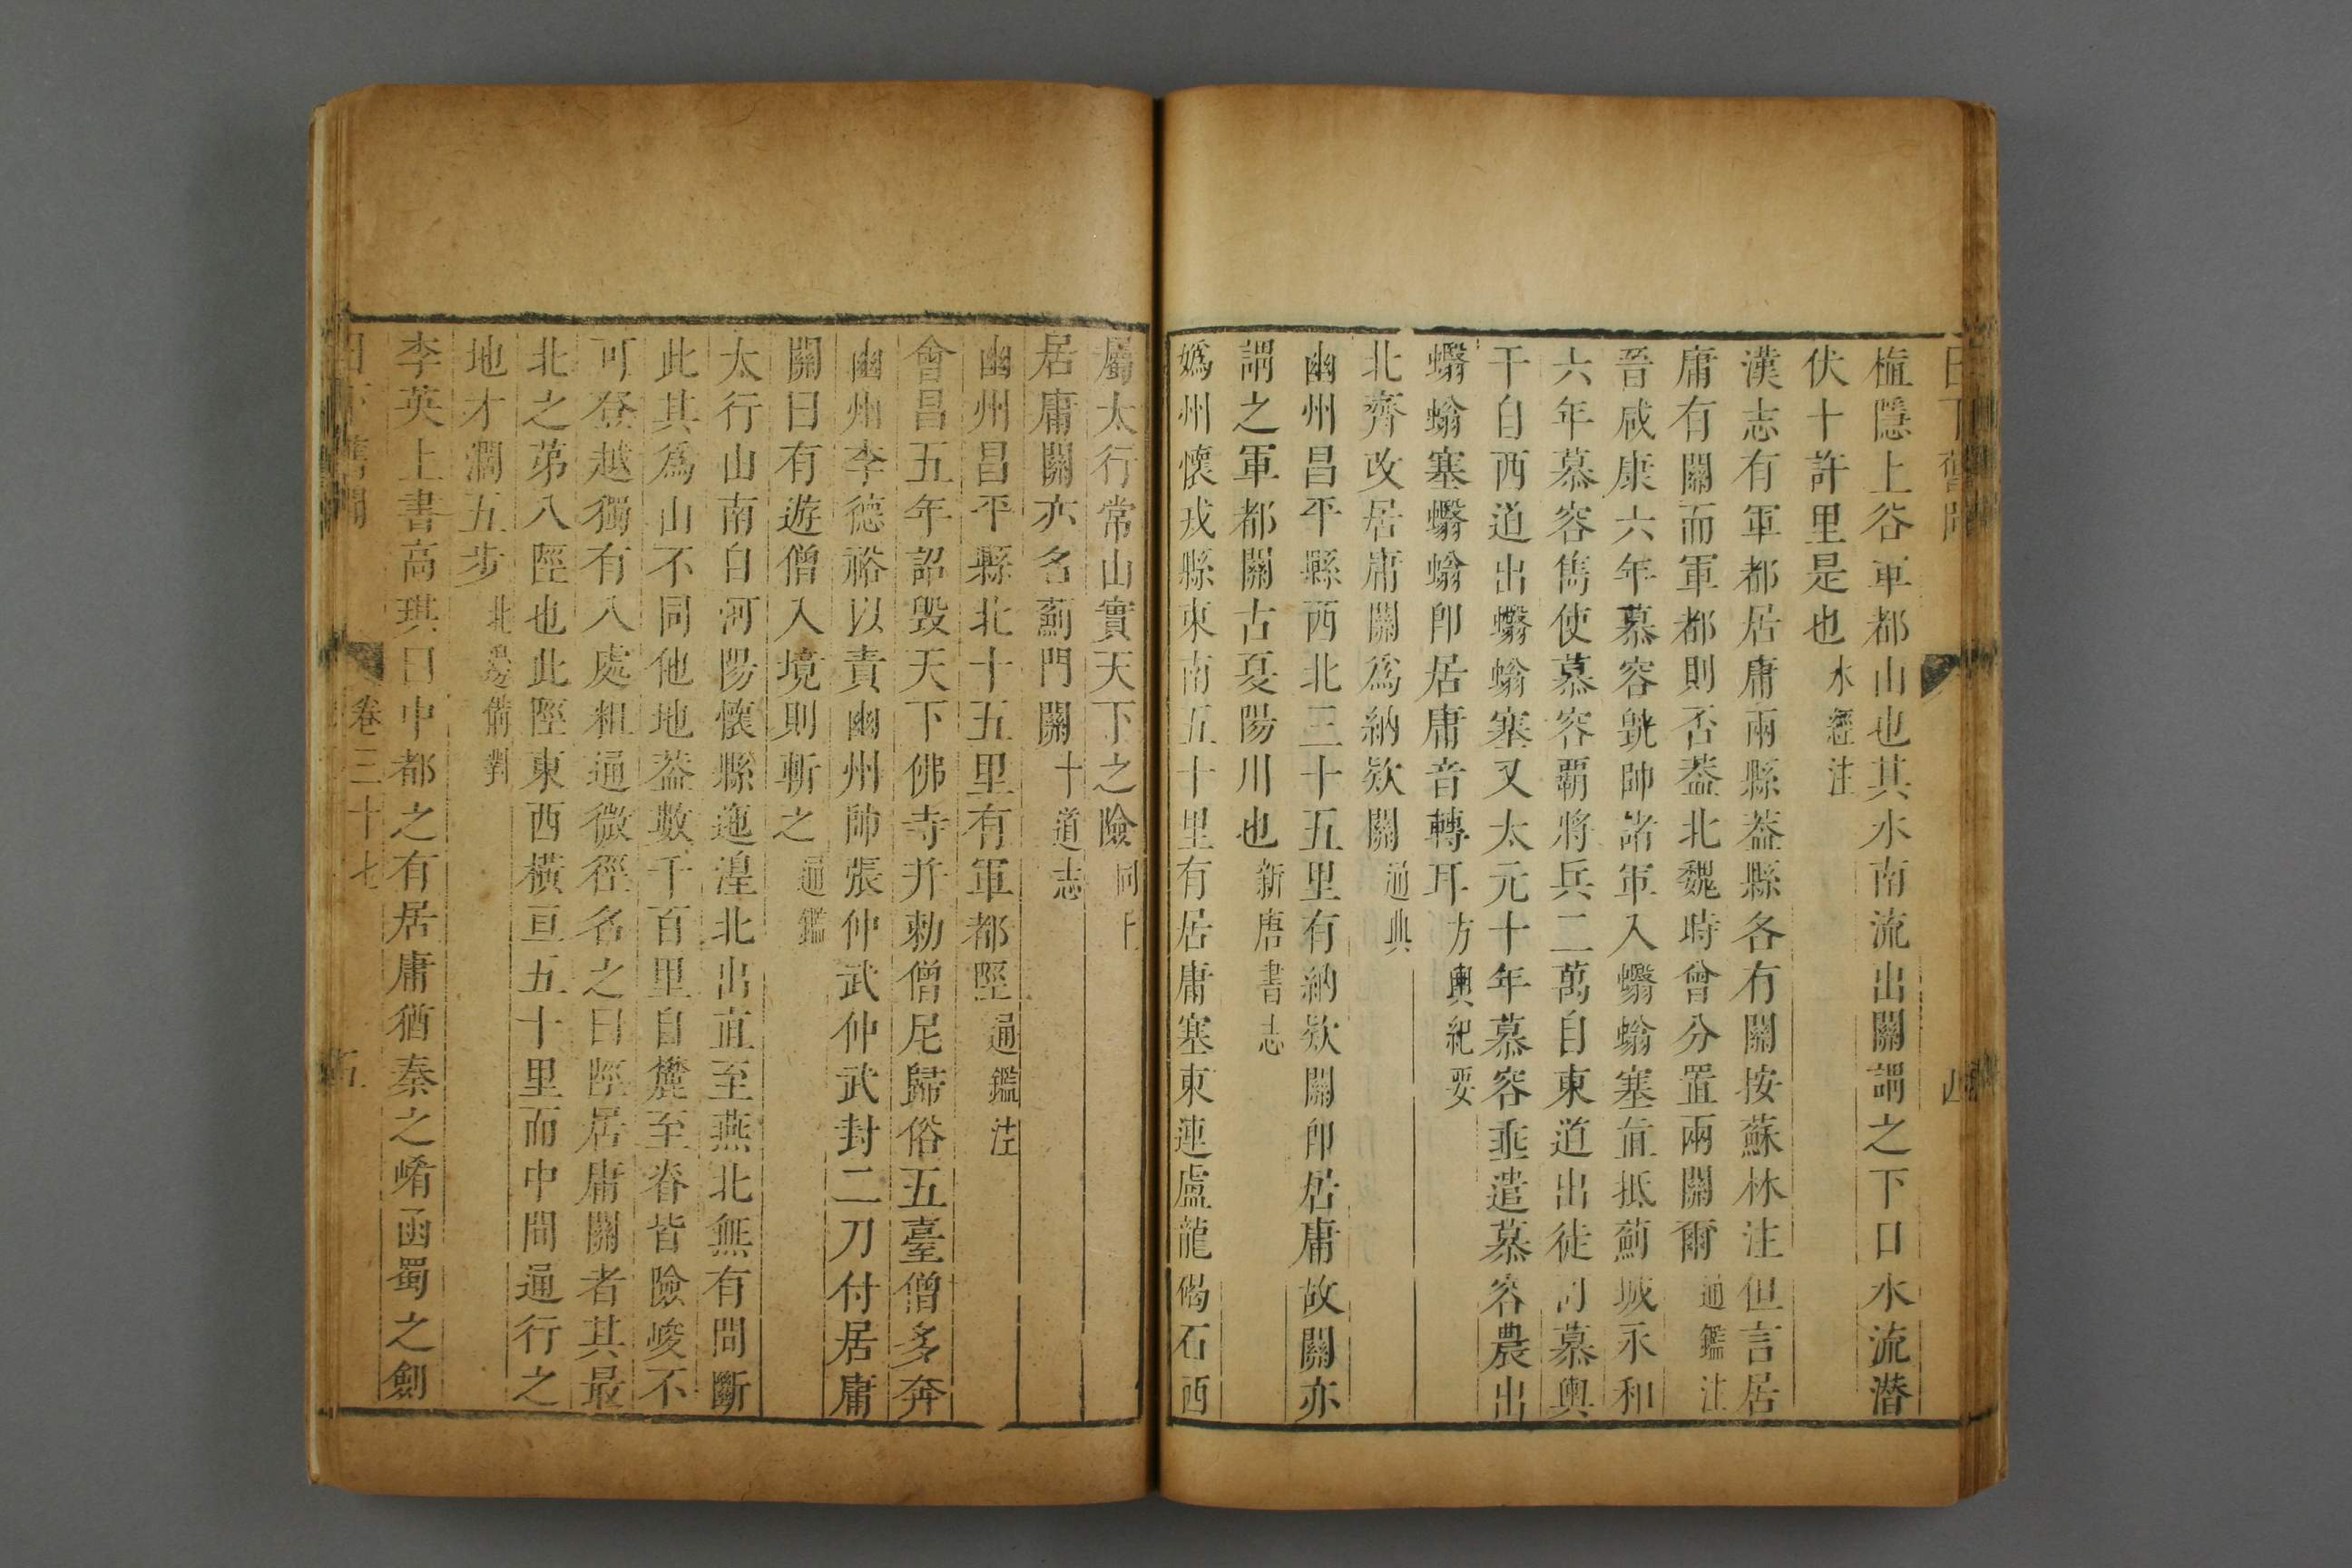 日下舊聞
四
楦隱上谷軍都山也其水南流出關謂之下口水流潛
伏十許里是也水經注
漢志有軍都居庸兩縣葢縣各有關按蘇林注但言居
庸有關而軍都則否葢北魏時曾分置兩關爾通鑑注
晉咸康六年慕容皝帥諸軍入蠮螉塞直抵薊城永和
六年慕容雋使慕容霸將兵二萬自東道出徒河慕輿
干自西道出蠮螉塞又太元十年慕容垂遣慕容農出
蠮螉塞蠮螉卽居庸音轉耳方輿紀要
北齊改居庸關爲納欵關通典
幽州昌平縣西北三十五里有納欵關卽居庸故關亦
謂之軍都關古夏陽川也新唐書志
嬀州懷戎縣東南五十里有居庸塞東連盧龍碣石西
屬太行常山實天下之險同上
居庸關亦名薊門關十道志
幽州昌平縣北十五里有軍都陘通鑑注
會昌五年詔毀天下佛寺并勅僧尼歸俗五臺僧多奔
幽州李德裕以責幽州帥張仲武仲武封二刀付居庸
關曰有遊僧入境則斬之通鑑
太行山南自河陽懷縣迤湟北出直至燕北無有間斷
此其爲山不同他地葢數千百里自麓至脊皆險峻不
可登越獨有八處粗通微徑名之曰陘居庸關者其最
北之第八陘也此陘東西橫亘五十里而中間通行之
地才濶五步北邊備對
李英上書高琪曰中都之有居庸猶秦之崤函蜀之劍
日下舊聞
卷三十七
五